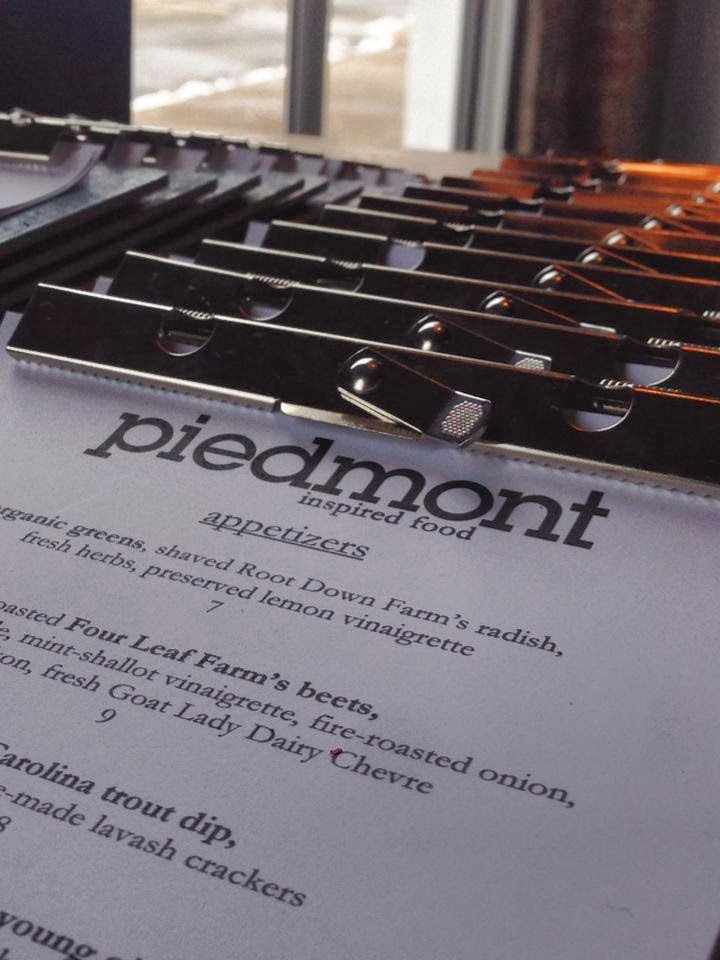 piedmont
inspired food
appetizers
organic greens, shaved Root Down Farm's radish,
fresh herbs, preserved lemon vinaigrette
7
Four Leaf Farm's beets,
mint-shallot vinaigrette, fire-roasted onion,
fresh Goat Lady Dairy Chevre
9
Carolina trout dip,
lavash crackers
8
young